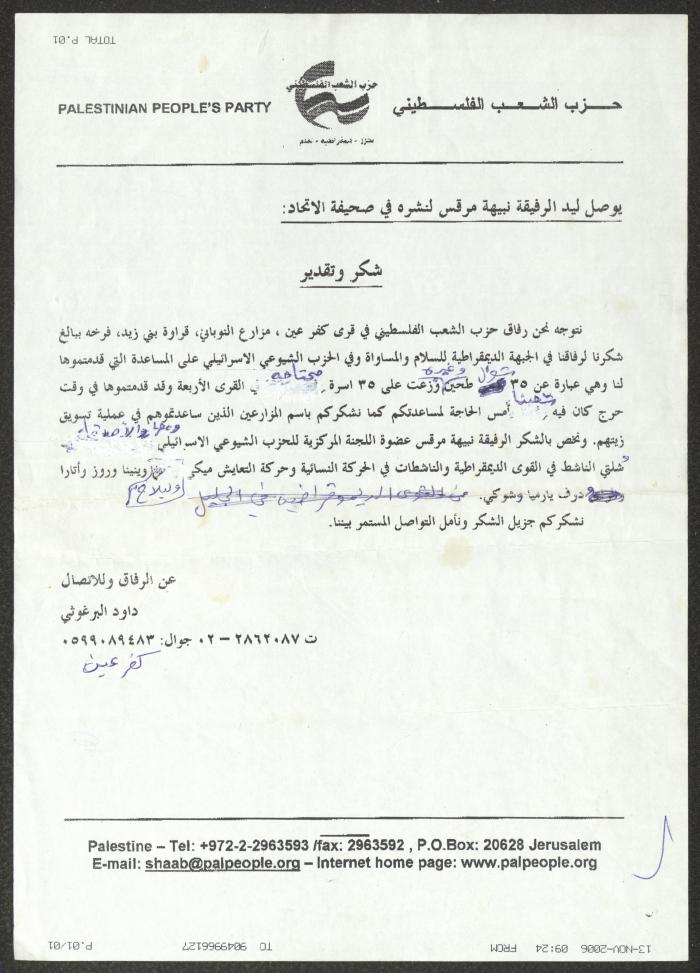 TOTAL P.01
PALESTINIAN PEOPLE'S PARTY
حزب الشعب الفلسطيني
حزب الشعب الفلسطيني
تحرر - ديمقراطية - تقدم
يوصل ليد الرفيقة نبيهة مرقس لنشره في صحيفة الاتحاد:
شكر وتقدير
نتوجه نحن رفاق حزب الشعب الفلسطيني في قرى كفر عين ، مزارع النوباني، قراوة بني زيد، فرخه ببالغ
شكرنا لرفاقنا في الجبهة الديمقراطية للسلام والمساواة وفي الحزب الشيوعي الاسرائيلي على المساعدة التي قدمتموها
لنا وهي عبارة عن ٣٥ شوال طحين وغيره وزعت على ٣٥ اسرة محتاجه في القرى الأربعة وقد قدمتموها في وقت
حرج كان فيه شعبنا أمس الحاجة لمساعدتكم كما نشكركم باسم المزارعين الذين ساعدتموهم في عملية تسويق
زيتهم. ونخص بالشكر الرفيقة نبيهة مرقس عضوة اللجنة المركزية للحزب الشيوعي الاسرائيلي
شلتي الناشط في القوى الديمقراطية والناشطات في الحركة النسائية وحركة التعايش ميكر وينينا وروز وأتارا
درف يارميا وشوكي. من القوى الديموقراطيه في الجليل
نشكركم جزيل الشكر ونأمل التواصل المستمر بيننا.
عن الرفاق وللاتصال
داود البرغوثي
ت ٢٨٦٢٠٨٧ – ٠٢ جوال: ٠٥٩٩٠٨٩٤٨٣
كفر عين
Palestine – Tel: +972-2-2963593 /fax: 2963592 , P.O.Box: 20628 Jerusalem
E-mail: shaab@palpeople.org – Internet home page: www.palpeople.org
13-NOV-2006 09:24 FROM TO 9049966127 P.01/01